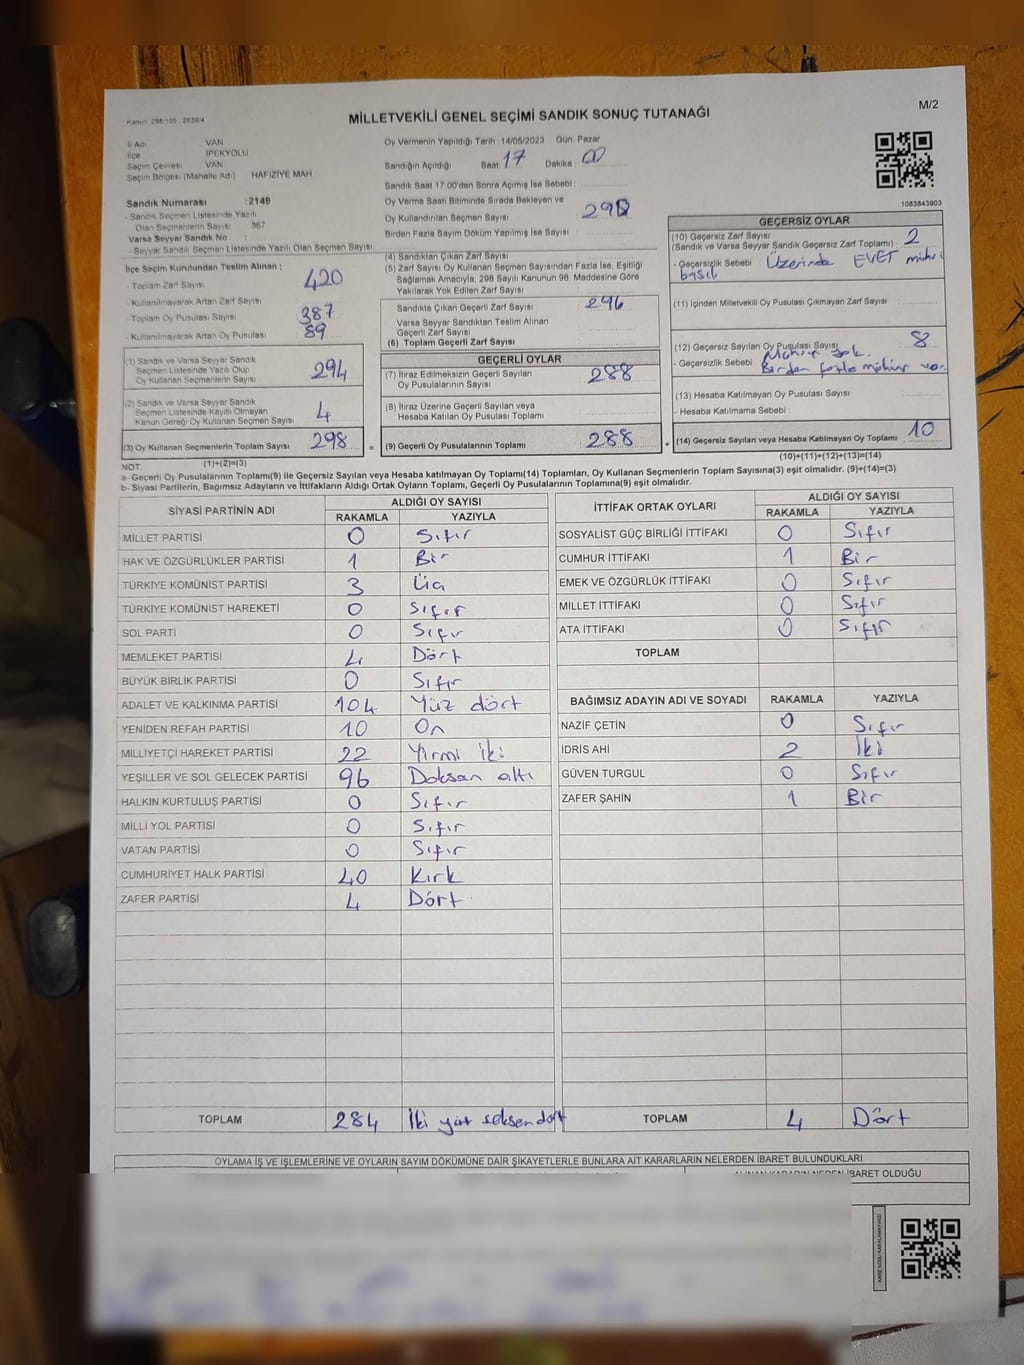 M/2
Kanun: 298/105 : 2839/4
MİLLETVEKİLİ GENEL SEÇİMİ SANDIK SONUÇ TUTANAĞI
İl Adı : VAN
İlçe : İPEKYOLU
Seçim Çevresi : VAN
Seçim Bölgesi (Mahalle Adı) : HAFIZIYE MAH
Sandık Numarası : 2149
- Sandık Seçmen Listesinde Yazılı
Olan Seçmenlerin Sayısı : 367
Varsa Seyyar Sandık No :
- Seyyar Sandık Seçmen Listesinde Yazılı Olan Seçmen Sayısı:
Oy Vermenin Yapıldığı Tarih : 14/05/2023 Gün: Pazar
Sandığın Açıldığı Saat: 17 Dakika: 00
Sandık Saat 17:00'den Sonra Açılmış İse Sebebi :
Oy Verme Saati Bitiminde Sırada Bekleyen ve
Oy Kullandırılan Seçmen Sayısı : 298
Birden Fazla Sayım Döküm Yapılmış İse Sayısı :
1083843903
İlçe Seçim Kurulundan Teslim Alınan ;
- Toplam Zarf Sayısı : 420
- Kullanılmayarak Artan Zarf Sayısı :
- Toplam Oy Pusulası Sayısı : 387
- Kullanılmayarak Artan Oy Pusulası : 89
(1) Sandık ve Varsa Seyyar Sandık
Seçmen Listesinde Yazılı Olup
Oy Kullanan Seçmenlerin Sayısı 294
(2) Sandık ve Varsa Seyyar Sandık
Seçmen Listesinde Kayıtlı Olmayan
Kanun Gereği Oy Kullanan Seçmen Sayısı 4
(3) Oy Kullanan Seçmenlerin Toplam Sayısı 298 =
(1)+(2)=(3)
(4) Sandıktan Çıkan Zarf Sayısı :
(5) Zarf Sayısı Oy Kullanan Seçmen Sayısından Fazla İse, Eşitliği
Sağlamak Amacıyla, 298 Sayılı Kanunun 98. Maddesine Göre
Yakılarak Yok Edilen Zarf Sayısı :
Sandıkta Çıkan Geçerli Zarf Sayısı : 296
Varsa Seyyar Sandıktan Teslim Alınan
Geçerli Zarf Sayısı :
(6) Toplam Geçerli Zarf Sayısı :
GEÇERLİ OYLAR
(7) İtiraz Edilmeksizin Geçerli Sayılan
Oy Pusulalarının Sayısı : 288
(8) İtiraz Üzerine Geçerli Sayılan veya
Hesaba Katılan Oy Pusulası Toplamı :
(9) Geçerli Oy Pusulalarının Toplamı : 288 +
GEÇERSİZ OYLAR
(10) Geçersiz Zarf Sayısı : 2
(Sandık ve Varsa Seyyar Sandık Geçersiz Zarf Toplamı)
- Geçersizlik Sebebi : Üzerinde EVET mührü
basılı
(11) İçinden Milletvekili Oy Pusulası Çıkmayan Zarf Sayısı :
(12) Geçersiz Sayılan Oy Pusulası Sayısı : 8
Mühür yok.
- Geçersizlik Sebebi : Birden fazla mühür var.
(13) Hesaba Katılmayan Oy Pusulası Sayısı :
- Hesaba Katılmama Sebebi :
(14) Geçersiz Sayılan veya Hesaba Katılmayan Oy Toplamı 10
(10)+(11)+(12)+(13)=(14)
NOT:
a- Geçerli Oy Pusulalarının Toplamı(9) ile Geçersiz Sayılan veya Hesaba katılmayan Oy Toplamı(14) Toplamları, Oy Kullanan Seçmenlerin Toplam Sayısına(3) eşit olmalıdır. (9)+(14)=(3)
b- Siyasi Partilerin, Bağımsız Adayların ve İttifakların Aldığı Ortak Oyların Toplamı, Geçerli Oy Pusulalarının Toplamına(9) eşit olmalıdır.
SİYASİ PARTİNİN ADI ALDIĞI OY SAYISI
RAKAMLA YAZIYLA
MİLLET PARTİSİ 0 Sıfır
HAK VE ÖZGÜRLÜKLER PARTİSİ 1 Bir
TÜRKİYE KOMÜNİST PARTİSİ 3 Üç
TÜRKİYE KOMÜNİST HAREKETİ 0 Sıfır
SOL PARTİ 0 Sıfır
MEMLEKET PARTİSİ 4 Dört
BÜYÜK BİRLİK PARTİSİ 0 Sıfır
ADALET VE KALKINMA PARTİSİ 104 Yüz dört
YENİDEN REFAH PARTİSİ 10 On
MİLLİYETÇİ HAREKET PARTİSİ 22 Yirmi iki
YEŞİLLER VE SOL GELECEK PARTİSİ 96 Doksan altı
HALKIN KURTULUŞ PARTİSİ 0 Sıfır
MİLLİ YOL PARTİSİ 0 Sıfır
VATAN PARTİSİ 0 Sıfır
CUMHURİYET HALK PARTİSİ 40 Kırk
ZAFER PARTİSİ 4 Dört
TOPLAM 284 İki yüz seksen dört
İTTİFAK ORTAK OYLARI ALDIĞI OY SAYISI
RAKAMLA YAZIYLA
SOSYALİST GÜÇ BİRLİĞİ İTTİFAKI 0 Sıfır
CUMHUR İTTİFAKI 1 Bir
EMEK VE ÖZGÜRLÜK İTTİFAKI 0 Sıfır
MİLLET İTTİFAKI 0 Sıfır
ATA İTTİFAKI 0 Sıfır
TOPLAM
BAĞIMSIZ ADAYIN ADI VE SOYADI RAKAMLA YAZIYLA
NAZİF ÇETİN 0 Sıfır
İDRİS AHİ 2 İki
GÜVEN TURGUL 0 Sıfır
ZAFER ŞAHİN 1 Bir
TOPLAM 4 Dört
OYLAMA İŞ VE İŞLEMLERİNE VE OYLARIN SAYIM DÖKÜMÜNE DAİR ŞİKAYETLERLE BUNLARA AİT KARARLARIN NELERDEN İBARET BULUNDUKLARI
ALINAN KARARIN NEDEN İBARET OLDUĞU
KARE KODU KARALAMAYINIZ!